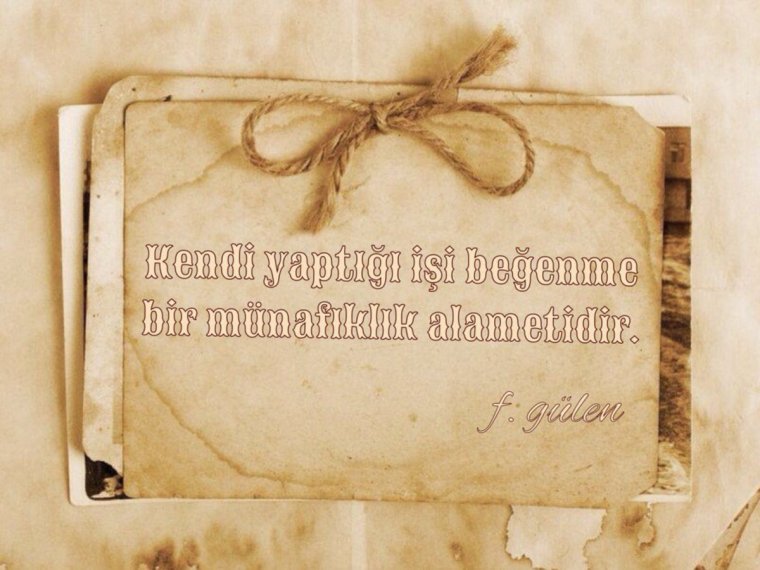 Kendi yaptığı işi beğenme
bir münafıklık alametidir.
f. gülen